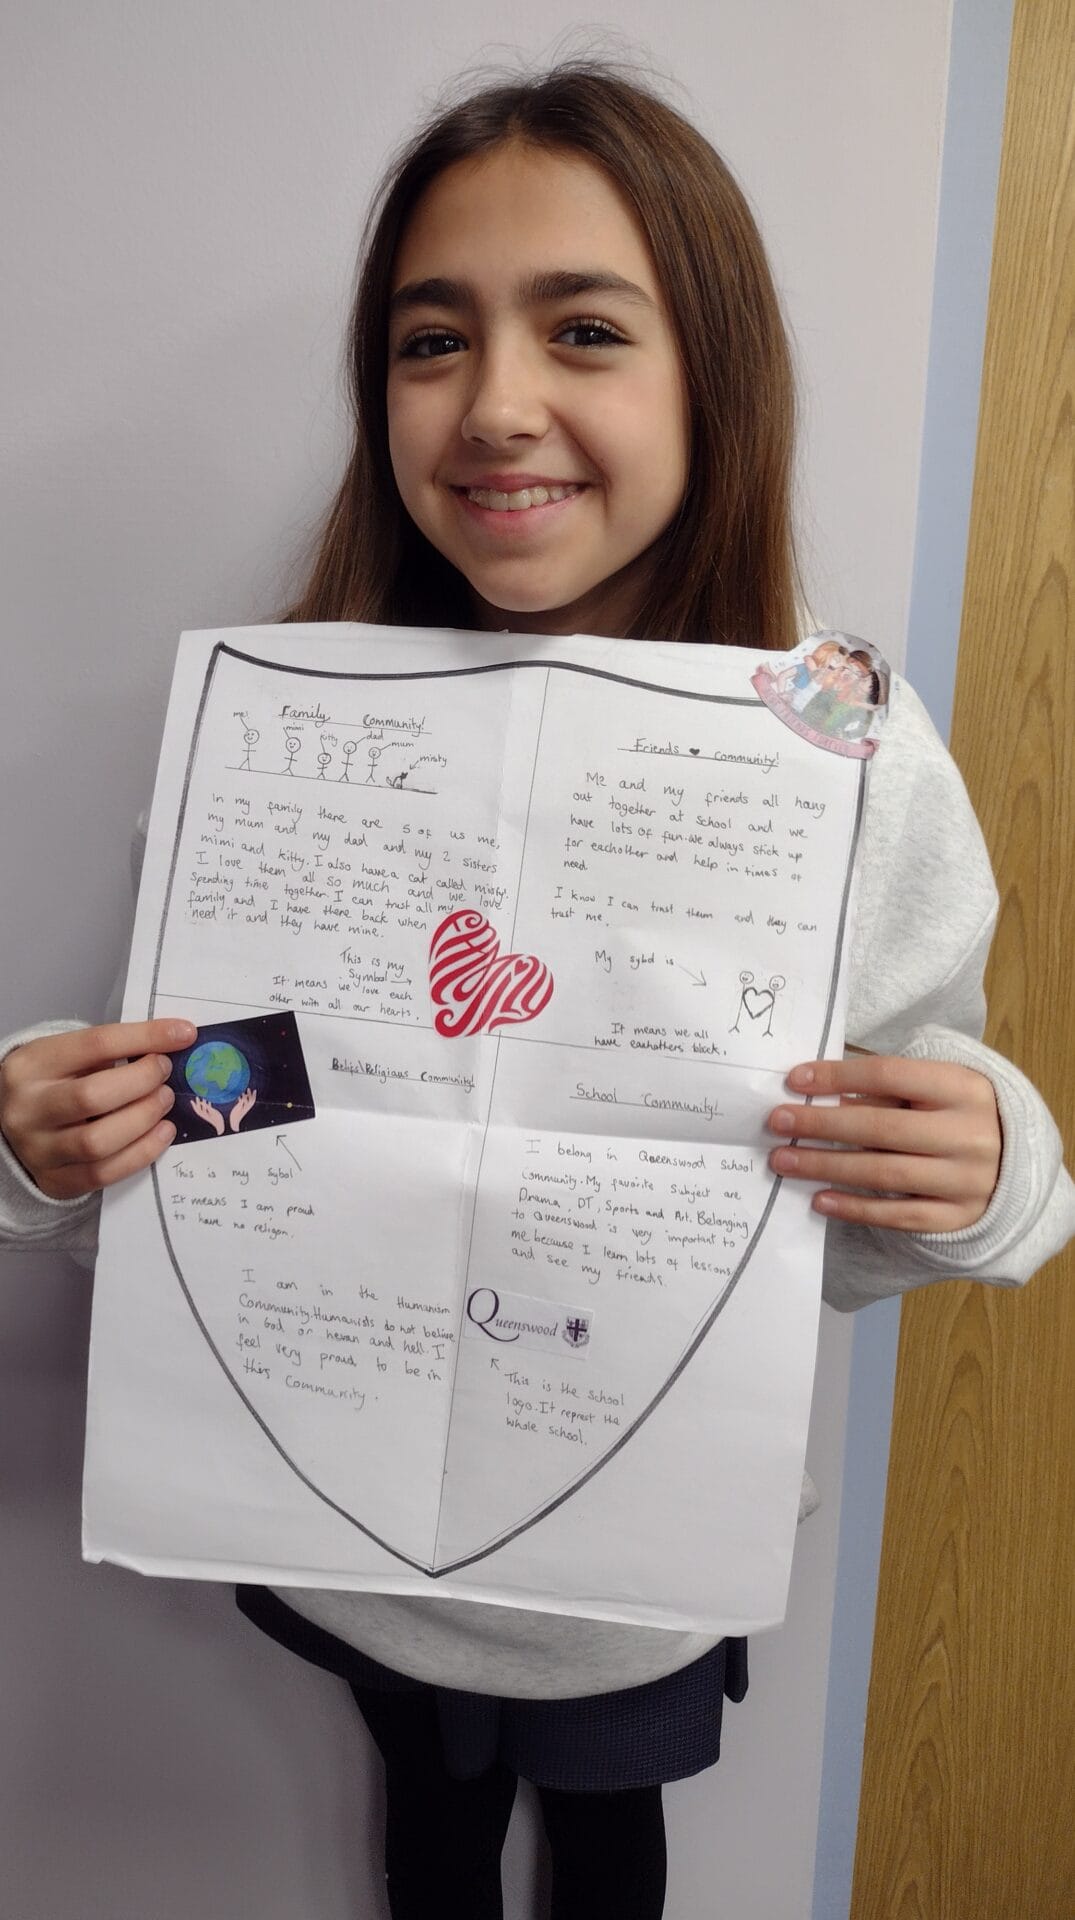 Family Community!
me!
mimi
kitty
dad
mum
misty
In my family there are 5 of us me,
my mum and my dad and my 2 sisters
mimi and kitty. I also have a cat called misty!
I love them all so much and we love
Spending time together. I can trust all my
family and I have there back when
need it and they have mine.
This is my
Symbol
It means we love each
other with all our hearts.
FAMILY
Friends ♥ community!
Me and my friends all hang
out together at School and we
have lots of fun. We always stick up
for eachother and help in times of
need.
I know I can trust them and they can
trust me.
My sybol is
It means we all
have eachothers back.
Belifs\Religious Community!
This is my Sybol
It means I am proud
to have no religon.
I am in the Humanism
Community. Humanists do not belive
in God or hevan and hell. I
feel very proud to be in
this Community.
School Community!
I belong in Queenswood School
Community. My favorite Subject are
Drama, DT, Sports and Art. Belonging
to Queenswood is very important to
me because I learn lots of lessons
and see my friends.
Queenswood
This is the school
logo. It represt the
whole school.